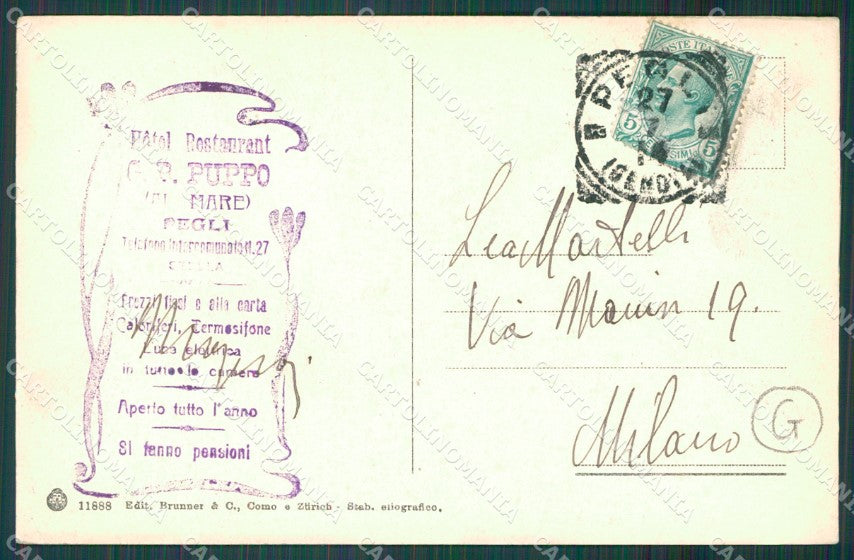 Hôtel Restaurant
G. B. PUPPO
(AL MARE)
PEGLI
Telefono Intercomunale 11.27
STELLA
Prezzi fissi e alla carta
Caloriferi, Termosifone
Luce elettrica
in tutte le camere
Aperto tutto l'anno
Si fanno pensioni
11888 Edit. Brunner & C., Como e Zürich - Stab. eliografico.
POSTE ITALIANE
5 CENTESIMI 5
PEGLI
27
7
(GENOVA)
Lea Martelli
Via Manin 19.
Milano
G
CARTOLINOMANIA